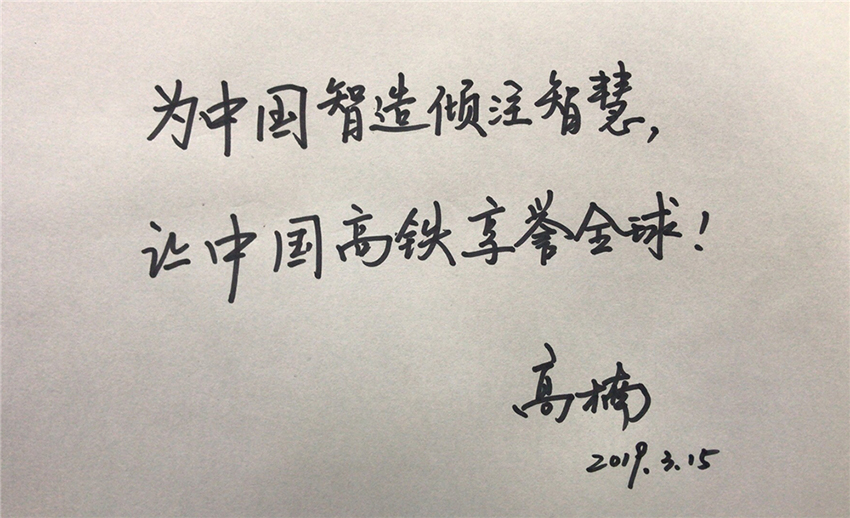 为中国智造倾注智慧,
让中国高铁享誉全球!
高楠
2019.3.15